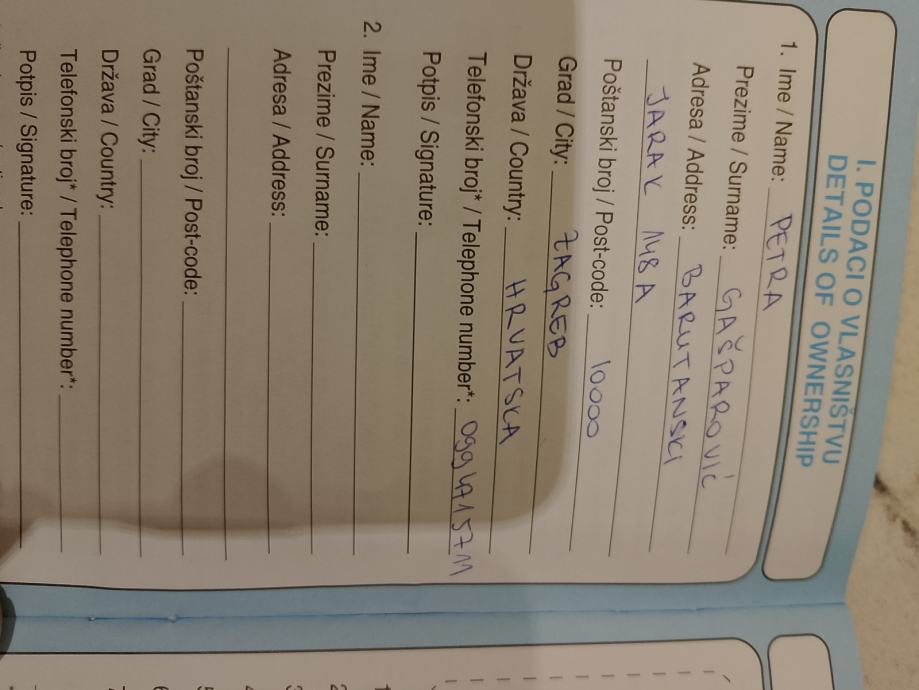 I. PODACI O VLASNIŠTVU
DETAILS OF OWNERSHIP
1. Ime / Name: PETRA
Prezime / Surname: GAŠPAROVIĆ
Adresa / Address: BARUTANSKI
JARAK 148 A
Poštanski broj / Post-code: 10000
Grad / City: ZAGREB
Država / Country: HRVATSKA
Telefonski broj* / Telephone number*: 099 4715711
Potpis / Signature:
2. Ime / Name:
Prezime / Surname:
Adresa / Address:
Poštanski broj / Post-code:
Grad / City:
Država / Country:
Telefonski broj* / Telephone number*:
Potpis / Signature: